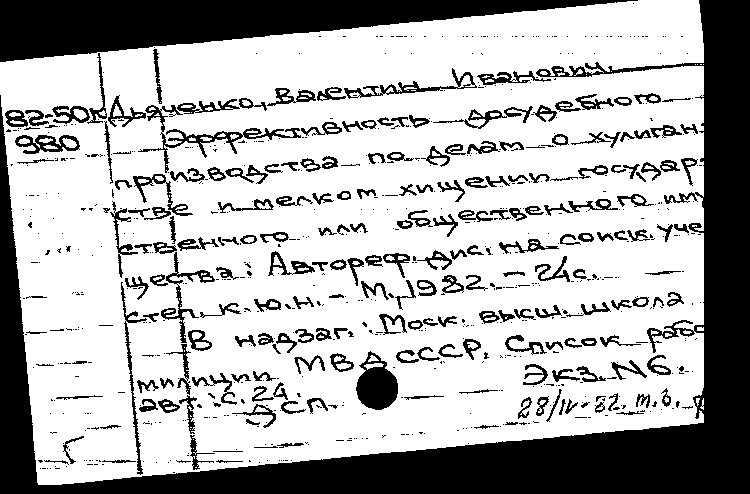 82-50к Дьяченко, Валентин Иванович.
980 Эффективность досудебного
производства по делам о хулиган-
стве и мелком хищении государ-
ственного или общественного иму
щества: Автореф. дис. на соиск. уче
степ. к.ю.н. - М., 1982. - 24с.
В надзаг.: Моск. высш. школа
милиции МВД СССР. Список рабо
авт.: с. 24. Экз. N6.
ДСП. 28/IV-82. т.з.